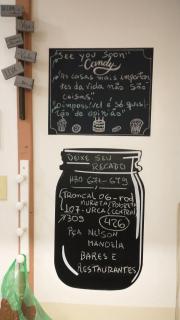 "See you soon"
Candy
"As coisas mais importan
tes da vida não são
coisas"
"O impossível é só ques
tão de opinião"
DEIXE SEU
RECADO
Troncal 06-rod
107-URCA (CENTRAL
309
426
PÇA NELSON
MANDELA
BARES E
RESTAURANTES